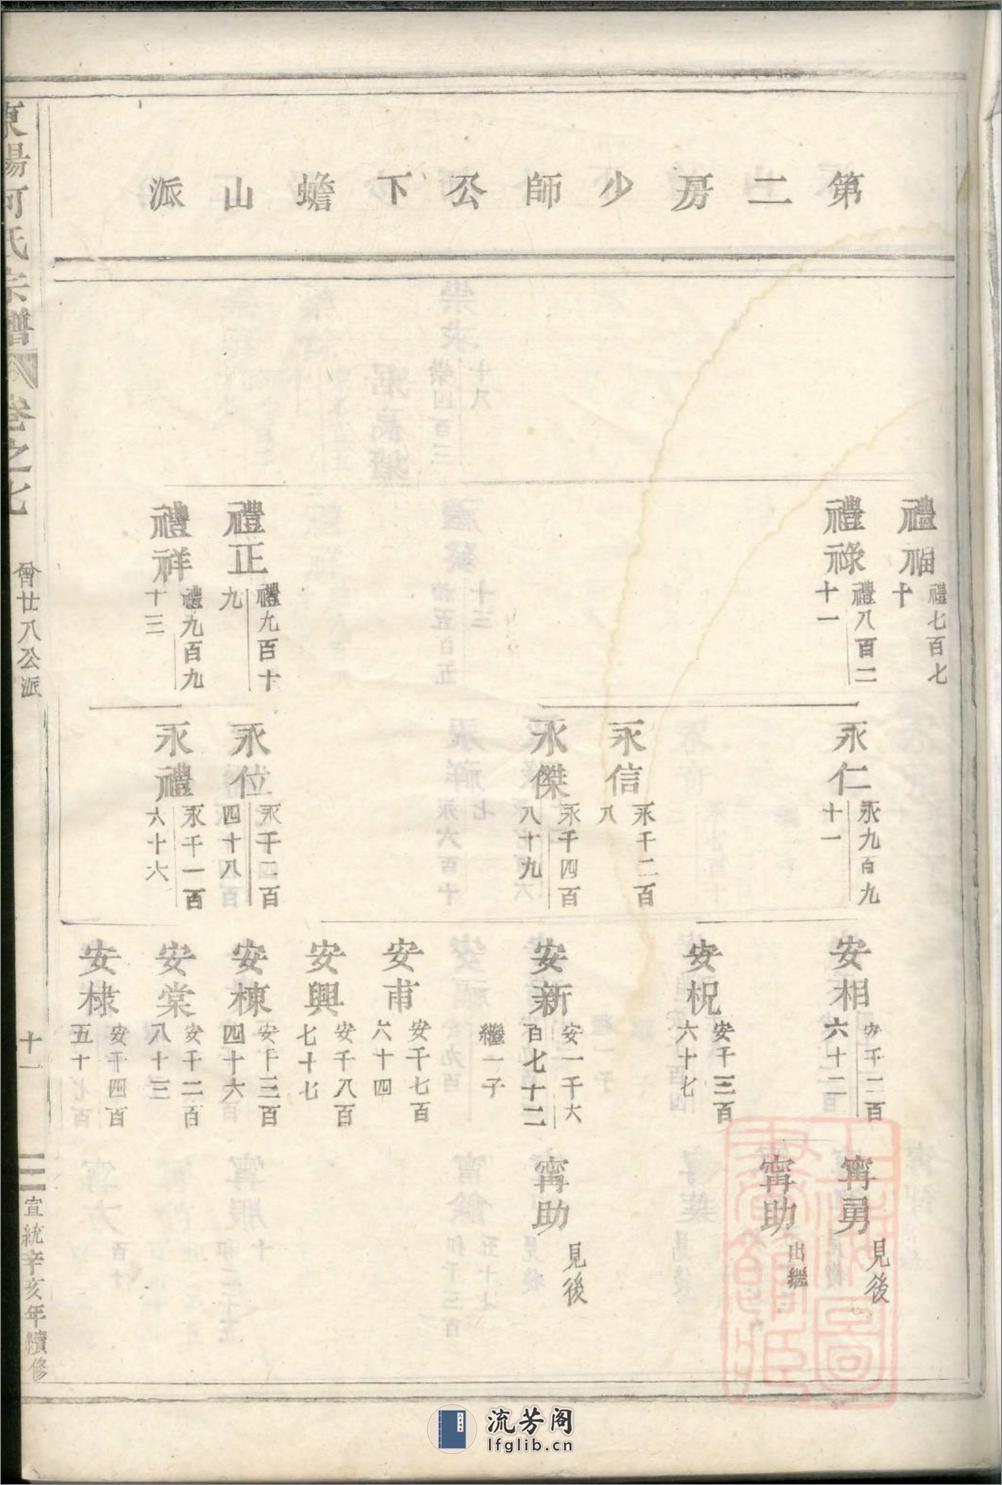 第二房少師公下蟾山派
禮福 禮七百七十
禮祿 禮八百二十一
禮正 禮九百十九
禮祥 禮九百九十三
永仁 永九百九十一
永信 永千二百八
永傑 永千四百八十九
永位 永千二百四十八
永禮 永千一百六十六
安相 安千二百六十二
安柷 安千三百六十七
安新 安一千六百七十二 繼一子
安甫 安千七百六十四
安興 安千八百七十七
安棟 安千三百四十六
安棠 安千二百八十三
安棣 安千四百五十
甯勇 見後
甯助 出繼
甯助 見後
東陽何氏宗譜
卷之七
曾廿八公派
十一
宣統辛亥年續修
流芳阁
lfglib.cn